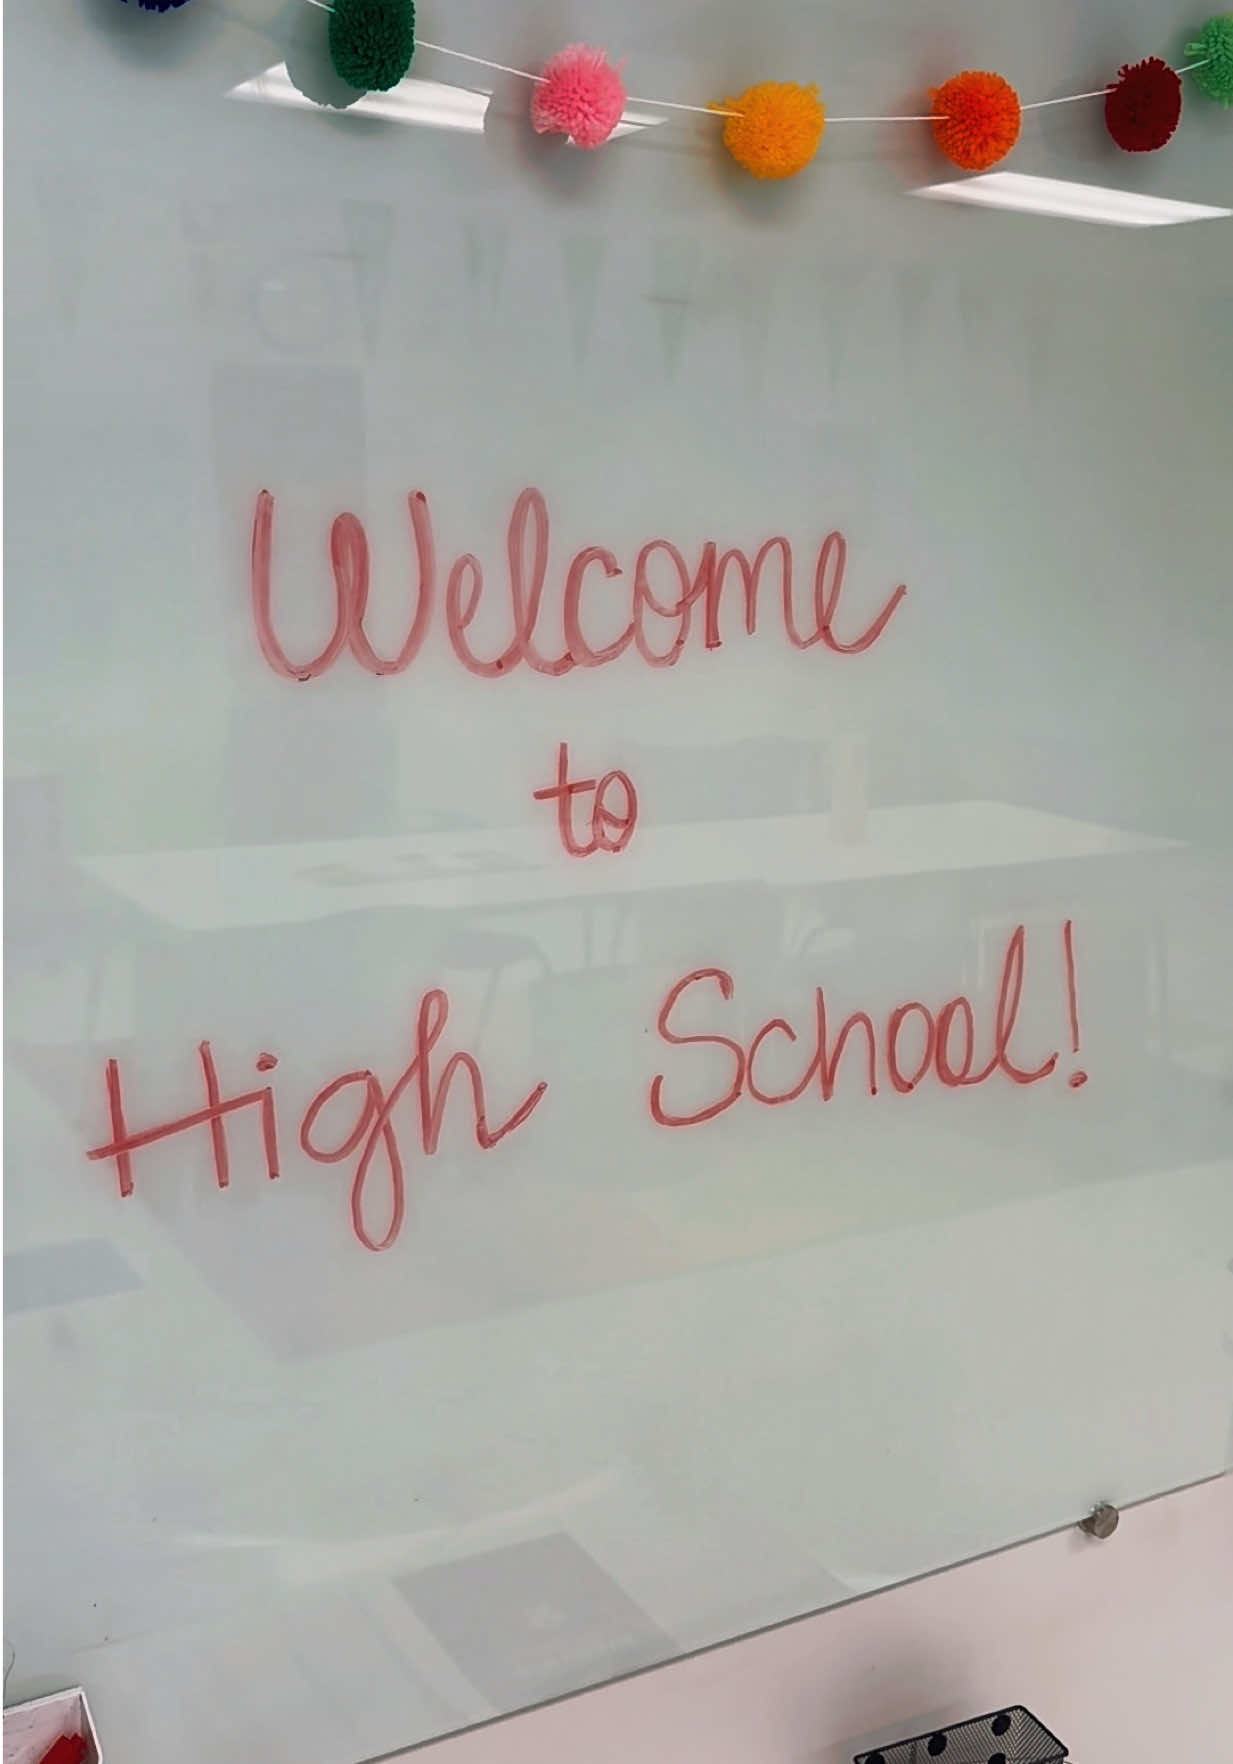 Welcome
to
High School!